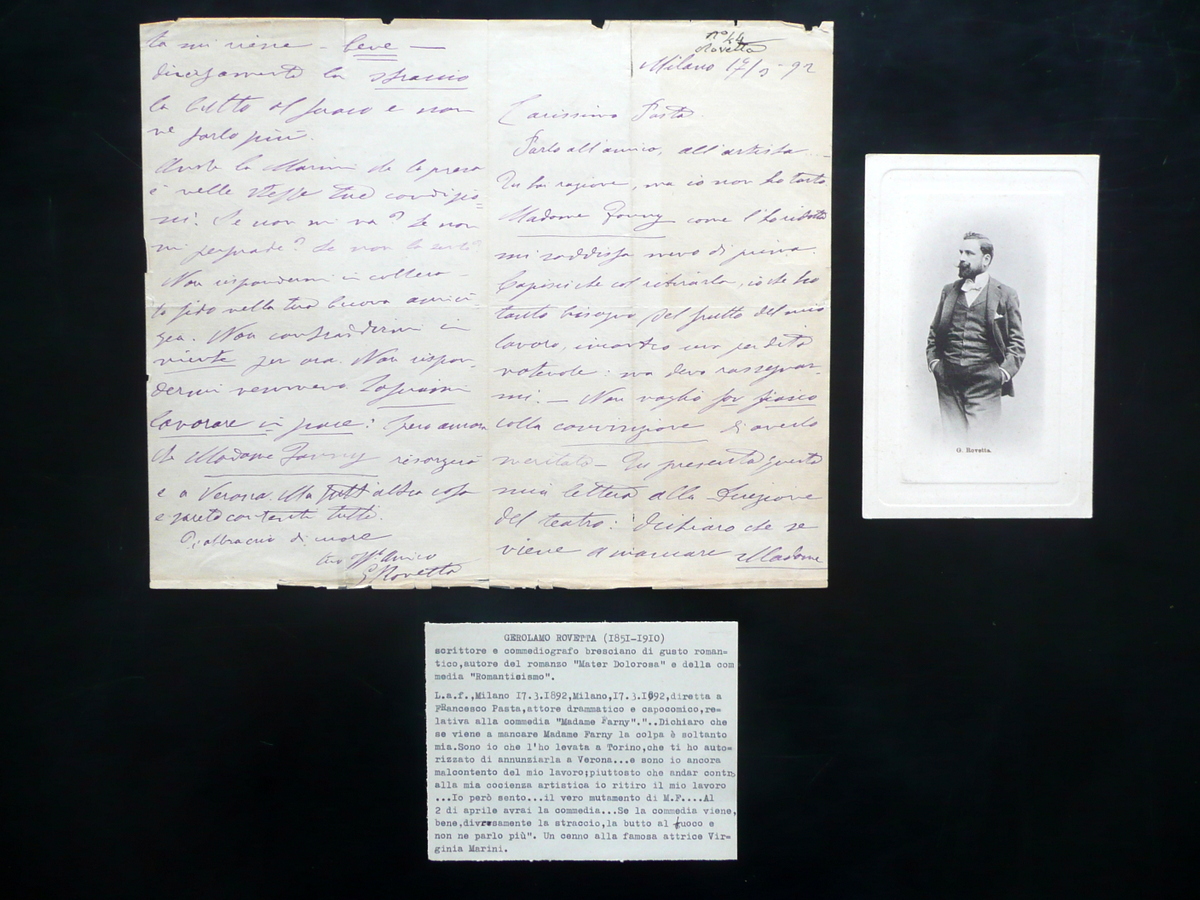 nº 44
Rovetta
Milano 17/3 - 92
Carissimo Pasta
Parlo all'amico, all'artista
Tu hai ragione, ma io non ho torto
Madame Fanny come l'ho ridotta
mi soddisfa meno di prima.
Capisci che col ritirarla, io che ho
tanto bisogno del frutto del mio
lavoro, incontro una perdita
notevole: ma devo rassegnar-
mi. — Non voglio far fiasco
colla convinzione di averlo
meritato — Tu presenta questa
mia lettera alla Direzione
del teatro: Dichiaro che se
viene a mancare Madame
ta mi viene - bene —
diversamente la straccio
la butto al fuoco e non
ne parlo più.
Anche la Marini
è nelle stesse tue condizio-
ni! Se non mi va? Se non
mi persuade? Se non la sento?
Non rispondermi in collera -
fido nella tua buona amici-
zia. Non contraddirmi in
niente per ora. Non rispon-
dermi nemmeno Lasciami
lavorare in pace: Spero ancora
che Madame Fanny risorgerà
e a Verona. Ma tutt'altra cosa
e sarete contenti tutti.
Ti abbraccio di cuore
tuo aff. Amico
GRovetta
G. Rovetta.
GEROLAMO ROVETTA (1851-1910)
scrittore e commediografo bresciano di gusto roman=
tico,autore del romanzo "Mater Dolorosa" e della com
media "Romantisismo".
L.a.f.,Milano 17.3.1892,Milano,17.3.1892,diretta a
FRancesco Pasta,attore drammatico e capocomico,re=
lativa alla commedia "Madame Farny"."..Dichiaro che
se viene a mancare Madame Farny la colpa è soltanto
mia.Sono io che l'ho levata a Torino,che ti ho auto=
rizzato di annunziarla a Verona...e sono io ancora
malcontento del mio lavoro;piuttosto che andar contro
alla mia cocienza artistica io ritiro il mio lavoro
...Io però sento...il vero mutamento di M.F....Al
2 di aprile avrai la commedia...Se la commedia viene,
bene,diversamente la straccio,la butto al fuoco e
non ne parlo più". Un cenno alla famosa attrice Vir=
ginia Marini.